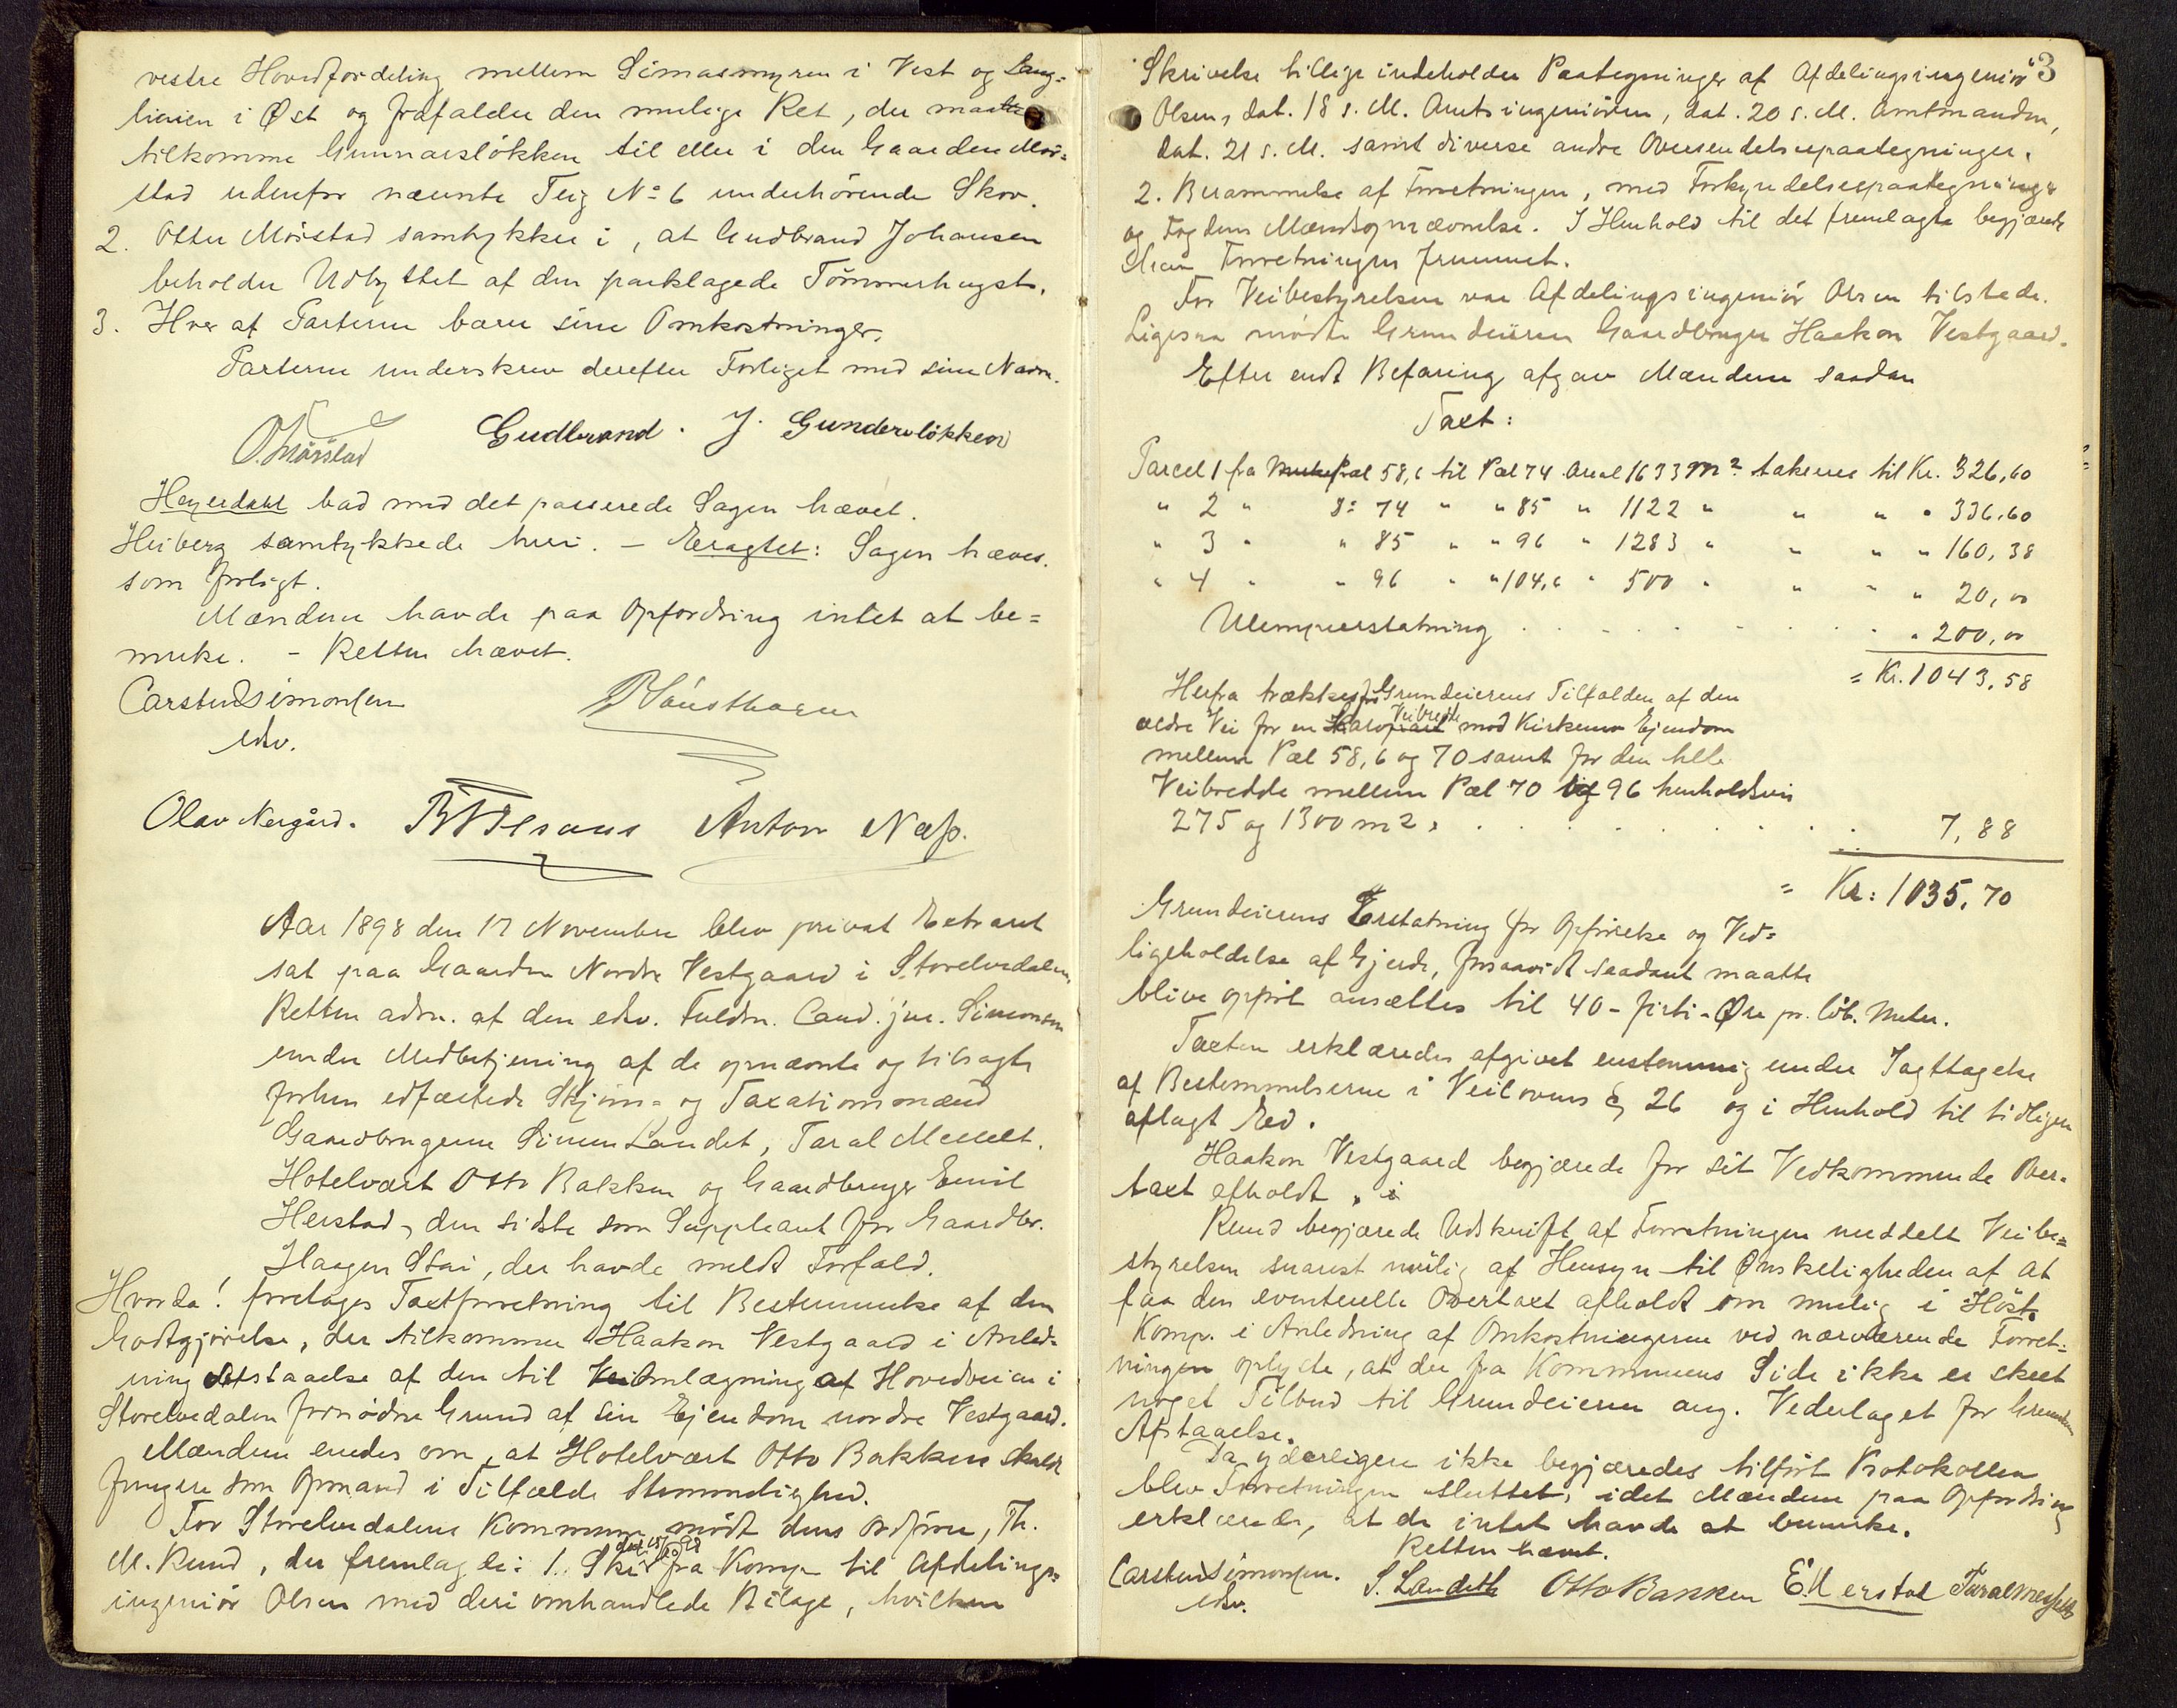 vestre Hovedfordeling mellem Simasmyren i Vest og Lang-
linien i Øst og frafalder den mulige Ret, der maatte
tilkomme Gunnarsløkken til eller i den Gaarden Mør-
stad udenfor nævnte Teig No 6 underhørende Skov.
2. Otter Mørstad samtykker i, at Gudbrand Johansen
beholder Udbyttet af den paaklagede Tømmerhugst.
3. Hver af Parterne bærer sine Omkostninger.
Parterne underskrev derefter Forliget med sine Navne.
O. Mørstad Gudbrand. J. Gundersløkken
Heyerdahl bad med det passerede Sagen hævet.
Heiberg samtykkede heri. - Eragtet: Sagen hæves
som forligt.
Mændene havde paa Opfordring intet at be=
mærke. - Retten hævet.
Carsten Simonsen
edsv.
Olav Nergård. Anton Næss.
Aar 1898 den 17 November blev privat Extraret
sat paa Gaarden Nordre Vestgaard i Storelvedalen,
Retten adm. af den edsv. Fuldm. Cand. jur. Simonsen
under Medbetjening af de opnævnte og tilsagte
forhen edfæstede Skjøns- og Taxationsmænd
Gaardbrugerne Simen Landet, Taral Messelt,
Hotelvært Otto Bakken og Gaardbruger Emil
Herstad, den sidste som Suppleant for Gaardbr.
Haagen Stai, der havde meldt Forfald.
Hvorda! foretages Taxtforretning til Bestemmelse af den
Godtgjørelse, der tilkommer Haakon Vestgaard i Anled-
ning Afstaaelse af den til Veiomlægning af Hovedveien i
Storelvedalen fornødne Grund af sin Ejendom nordre Vestgaard.
Mændene enedes om, at Hotelvært Otto Bakken skulde
fungere som Opmand i Tilfælde Stemmelighed.
For Storelvedalens Kommune mødte dens Ordfører, Th.
M. Rund, der fremlagde: 1. Skr. dat. 15/10 98 fra Komp. til Afdelings-
ingeniør Olsen med deri omhandlede Bilage, hvilken
3
Skrivelse tillige indeholder Paategninger af Afdelingsingeniør
Olsen, dat. 18 s. M. Amtsingeniøren, dat. 20 s. M. Amtmanden,
dat. 21 s. M. samt diverse andre Oversendelsespaategninger.
2. Berammelse af Forretningen, med Forkyndelsespaategninger
og Fogdens Mændsopnævnelse. I Henhold til det fremlagte begjærede
Forretningen fremmet.
For Veibestyrelsen var Afdelingsingeniør Olsen tilstede.
Ligesaa mødte Grundeieren Gaardbruger Haakon Vestgaard.
Efter endt Befaring afgav Mændene saadan
Taxt:
Parcel 1 fra Pæl 58,6 til Pæl 74 Areal 1633 m2 takeres til Kr. 326,60
" 2 " 8: 74 " " 85 " 1122 " " " " 336,60
" 3 " " 85 " " 96 " 1283 " " " " 160,38
" 4 " " 96 " " 104,6 " 500 " " " " 20,00
Ulempeerstatning . . . . . . " 200,00
= Kr. 1043,58
Herfra trækkes for Grundeierens Tilfalden af den
ældre Vei for en Veibredde mod Kirkens Ejendom
mellem Pæl 58,6 og 70 samt for den hele
Veibredde mellem Pæl 70 og 96 henholdsvis
275 og 1300 m2, . . . . . . . . 7,88
= Kr: 1035,70
Grundeierens Erstatning for Opførelse og Ved=
ligeholdelse af Gjerde, forsaavidt saadant maatte
blive opført ansættes til 40 - firti - Øre pr. løb. Meter.
Taxten erklæredes afgivet enstemmig under Iagttagelse
af Bestemmelserne i Veilovens § 26 og i Henhold til tidligere
aflagt Eed.
Haakon Vestgaard begjærede for sit Vedkommende Over-
taxt afholdt.
Rund begjærede Udskrift af Forretningen meddelt Veibe=
styrelsen snarest mulig af Hensyn til Ønskeligheden af at
faa den eventuelle Overtaxt afholdt om mulig i Høst.
Komp. i Anledning af Omkostningerne ved nærværende Forret-
ningen oplyste, at der fra Kommunens Side ikke er skeet
noget Tilbud til Grundeieren ang. Vederlaget for Grundens
Afstaaelse.
Da yderligere ikke begjæredes tilført Protokollen
blev Forretningen sluttet, idet Mændene paa Opfordring
erklærede, at de intet havde at bemærke.
Retten hævet.
Carsten Simonsen. S. Landeth Otto Bakken E. Herstad Taral Messelt
edsv.